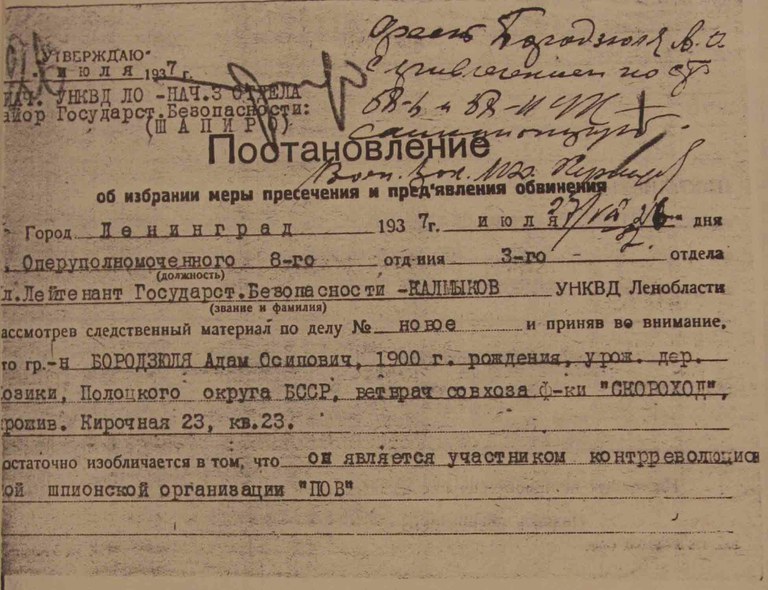 Арест Бородзюля А. О.
"УТВЕРЖДАЮ"
июля 1937 г.
НАЧ. УНКВД ЛО -НАЧ.3 ОТДЕЛА
айор Государст.Безопасности:
(ШАПИРО)
58-6 и 58-11 УК
санкционирую.
Постановление
об избрании меры пресечения и пред'явления обвинения
Город Ленинград 1937г. июля 26 дня
. Оперуполномоченного 8-го отд-ния 3-го отдела
(должность)
л.Лейтенант Государст.Безопасности -КАЛМЫКОВ УНКВД Ленобласти
(звание и фамилия)
ассмотрев следственный материал по делу № новое и приняв во внимание,
то гр.-н БОРОДЗЮЛЯ Адам Осипович, 1900 г. рождения, урож. дер.
озики, Полоцкого округа БССР, ветврач совхоза ф-ки "СКОРОХОД",
рожив. Кирочная 23, кв.23.
остаточно изобличается в том, что он является участником контрреволюцион
ой шпионской организации "ПОВ"